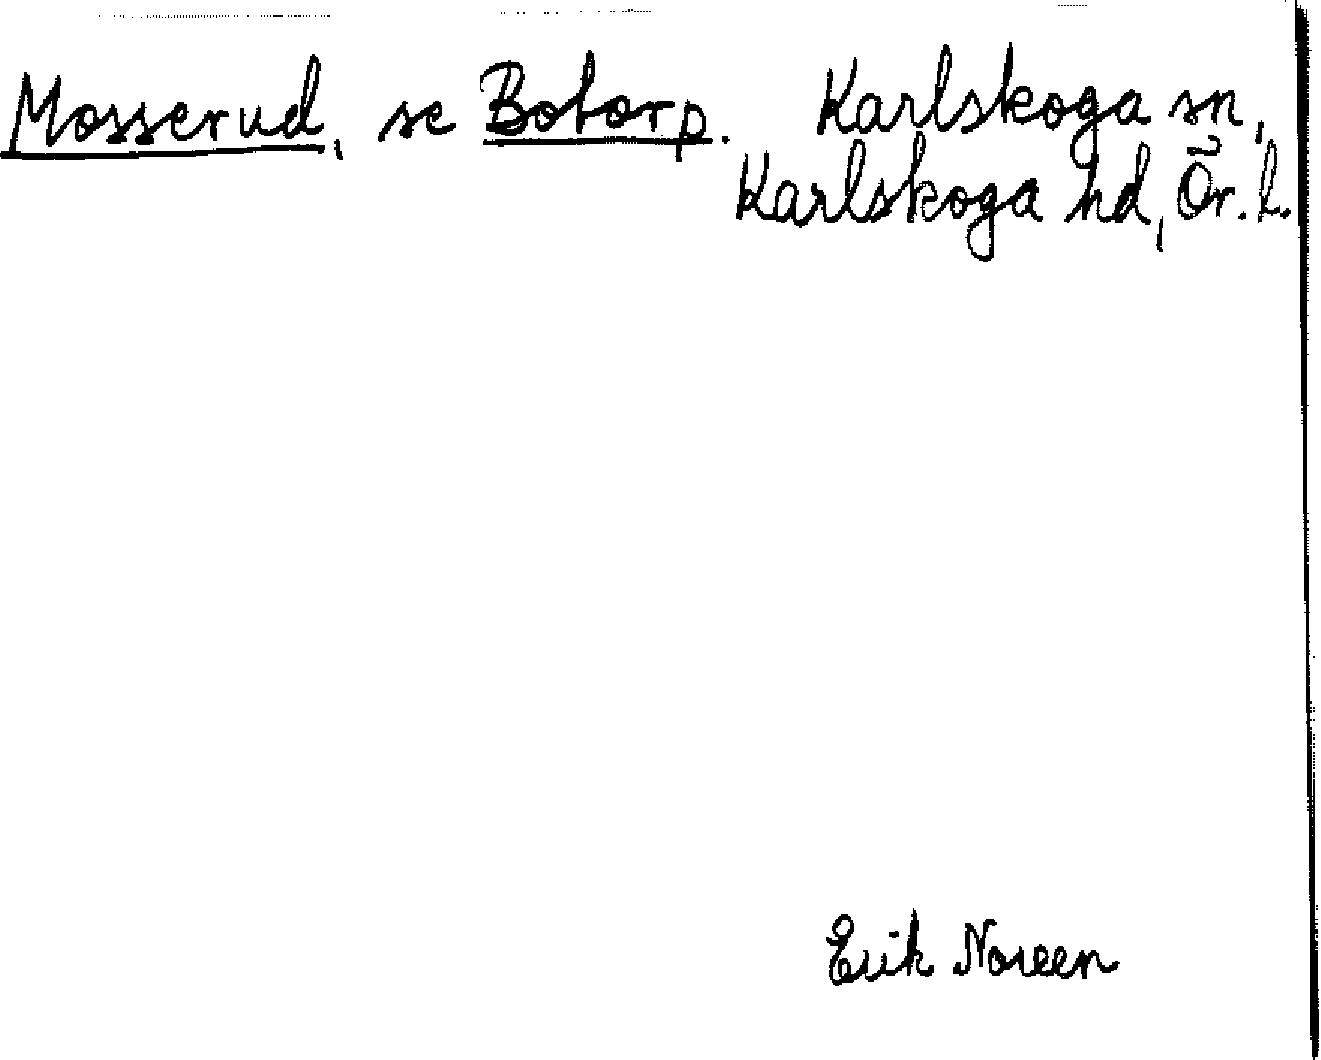 Mosserud, se Botorp. Karlskoga sn,
Karlskoga hd, Ör. l.
Erik Noreen